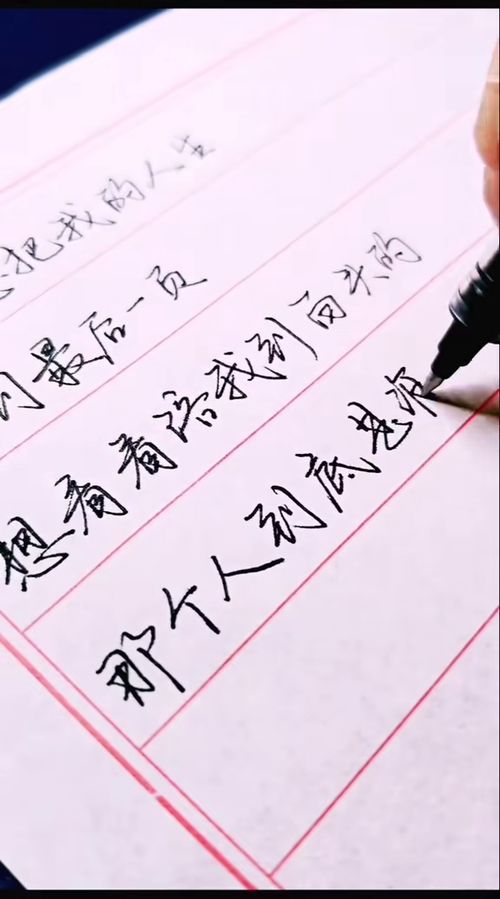 把我的人生
到最后一页
想看看陪我到白头的
那个人到底是